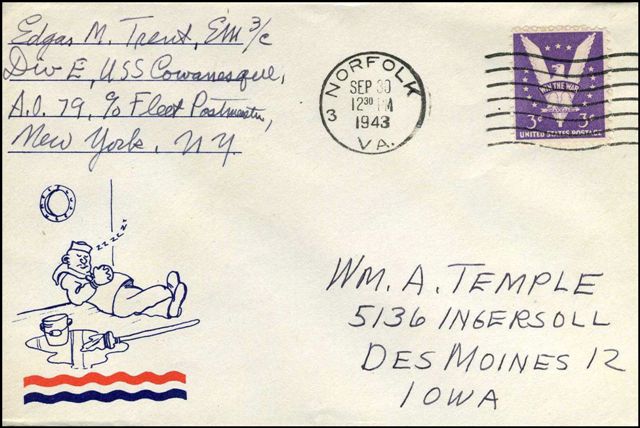 Edgar M. Trent, EM 3/c
Div E, USS Cowanesque,
A.O. 79, c/o Fleet Postmaster,
New York, N.Y.
NORFOLK
SEP 30
12 30 PM
1943
3
VA.
WIN THE WAR
3¢ 3¢
UNITED STATES POSTAGE
zzzzz
WM. A. TEMPLE
5136 INGERSOLL
DES MOINES 12
IOWA